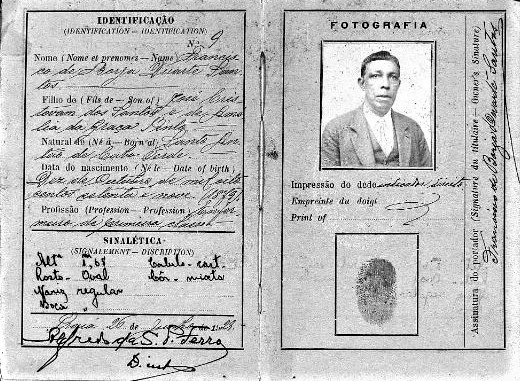 IDENTIFICAÇÃO
(IDENTIFICATION — IDENTIFICATION)
N.º 9
Nome (Nome et prenomes — Name) Francis
co de Borja Duarte San-
tos
Filho de (Fils de — Son of) José Cris
tovam dos Santos e de
da Graça Pinto
Natural de (Né à — Born at) Santo An-
tão de Cabo Verde.
Data do nascimento (Né le — Date of birth)
Dez de Outubro de mil oito
centos setenta e nove (1879)
Profissão (Profession — Profession)
de primeira classe
SINALÉTICA:
(SIGNALEMENT — DISCRIPTION)
Altª 1,67 Cabelo - cast.
Rosto - Oval Côr - mixta
Nariz regular
Boca "
Praia 26 de de 1928
Alfredo da S. P. Serra
FOTOGRAFIA
Impressão do dedo indicador direito
Empreinte du doigt
Print of
Assinatura do portador (Signature du titulaire — Owner's Sinature)
Francisco de Borja Duarte Santos